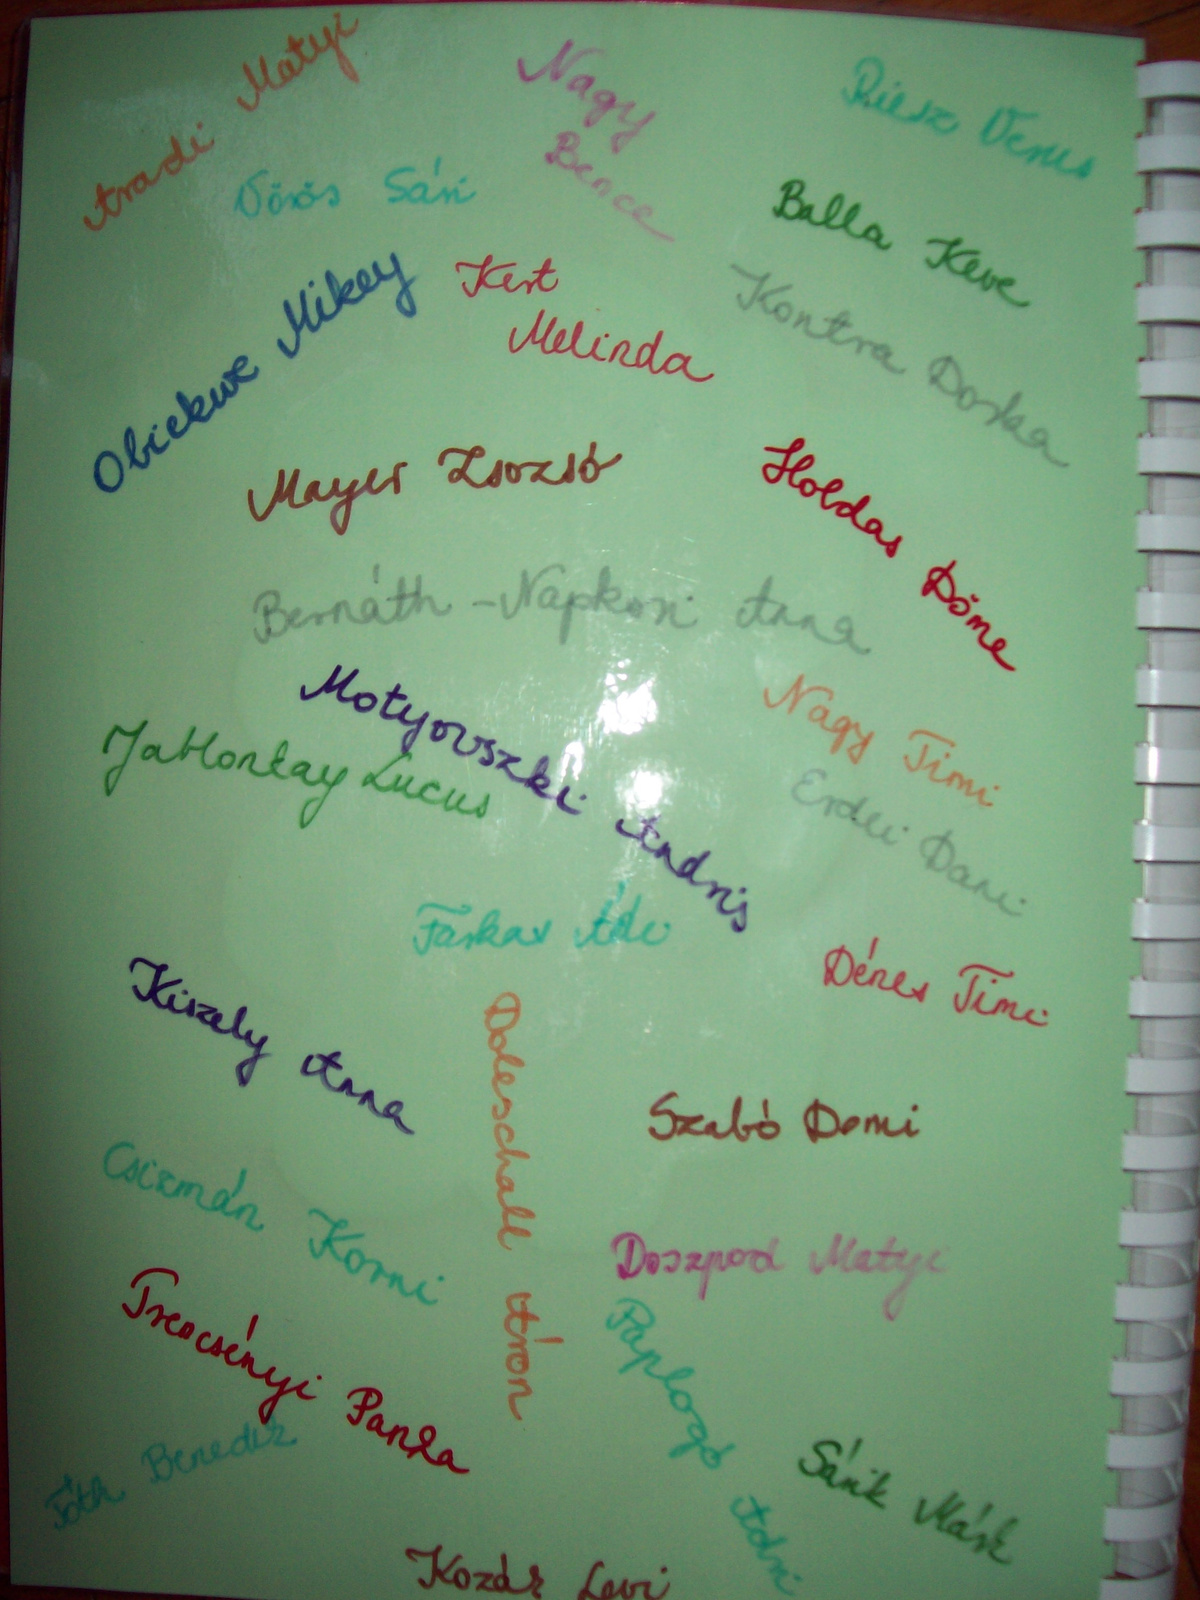 Aradi Matyi
Nagy
Bence
Riesz Vencs
Vörös Sári
Balla Keve
Obiekwe Mikey
Kert
Melinda
Kontra Dorka
Mayer Zsozsó
Holdas Döme
Bernáth-Napkori Anna
Motyovszki Andris
Nagy Timi
Jablonkay Lucus
Erdei Dani
Farkas Ádi
Dénes Timi
Kiszely Anna
Doleschall Áron
Szabó Domi
Csizmár Korni
Doszpod Matyi
Trencsényi Panka
Paplogó Adri
Tóth Benedek
Sárik Márk
Kozár Levi